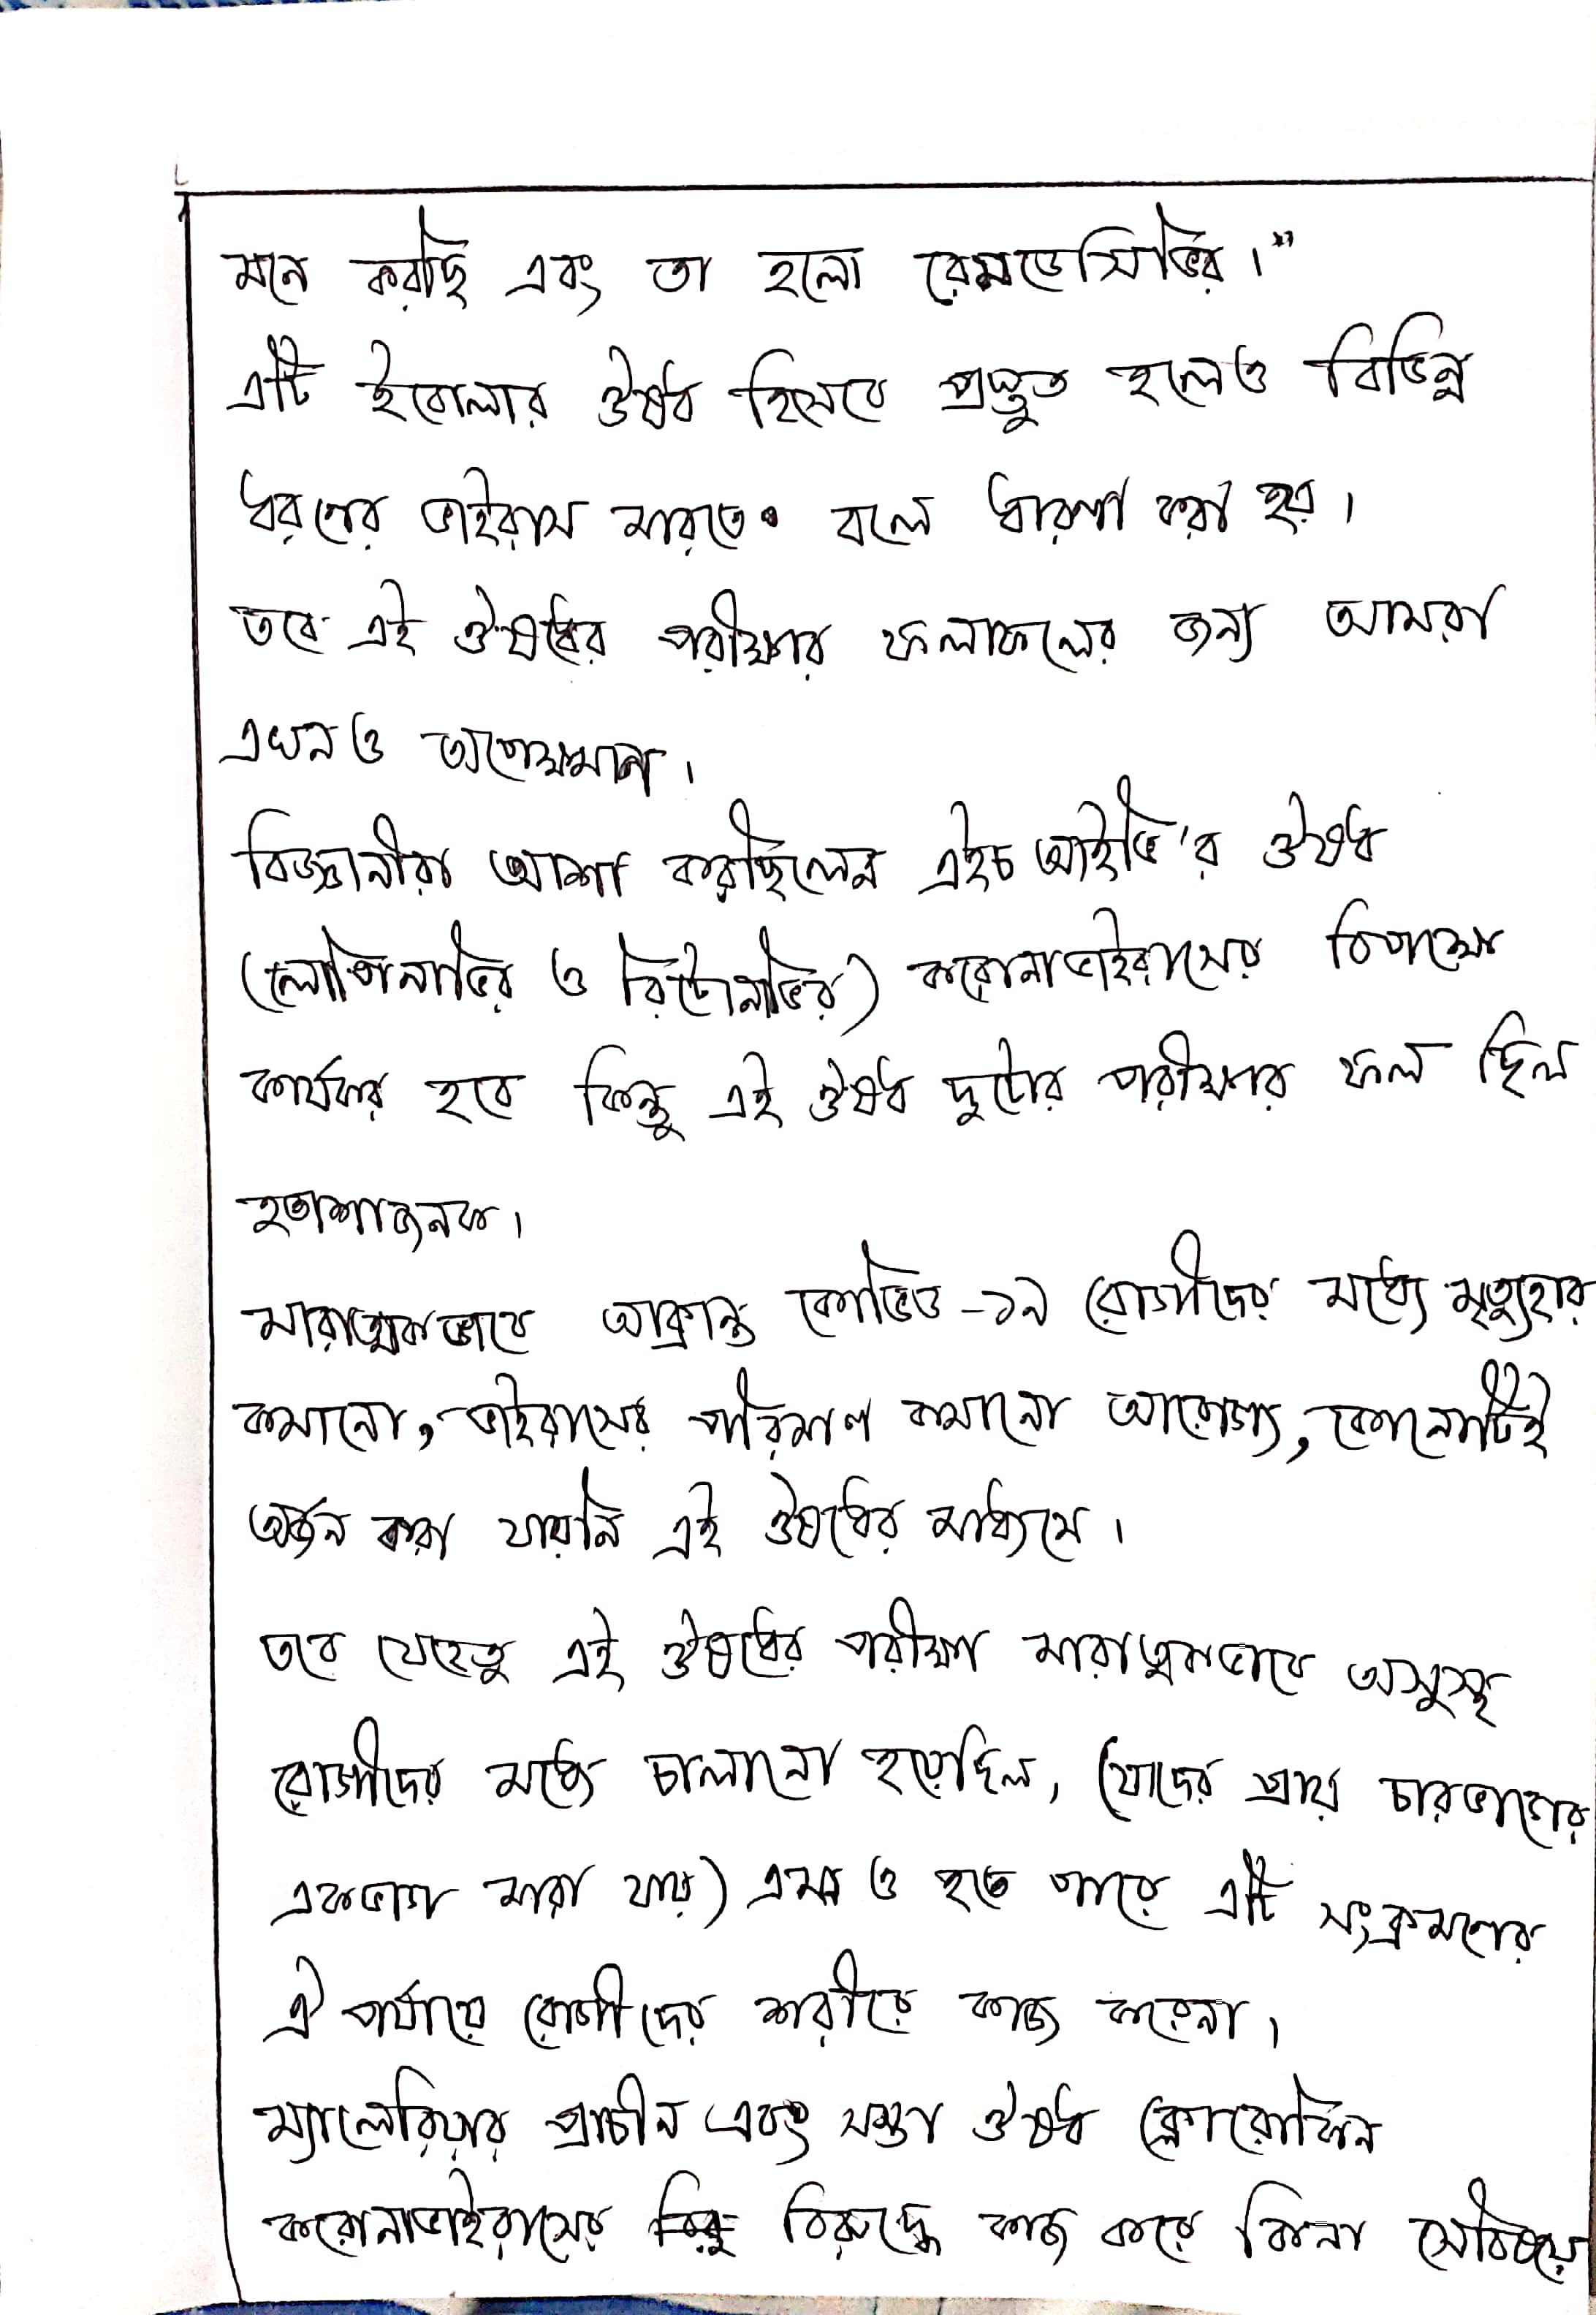 মনে করছি এবং তা হলো রেমডেসিভির।"
এটি ইবোলার ঔষধ হিসেবে প্রস্তুত হলেও বিভিন্ন
ধরণের ভাইরাস মারতে বলে ধারণা করা হয়।
তবে এই ঔষধের পরীক্ষার ফলাফলের জন্য আমরা
এখনও অপেক্ষমান।
বিজ্ঞানীরা আশা করছিলেন এইচ আইভি'র ঔষধ
(লোপিনাভির ও রিটোনাভির) করোনাভাইরাসের বিপক্ষে
কার্যকর হবে কিন্তু এই ঔষধ দুটোর পরীক্ষার ফল ছিল
হতাশাজনক।
মারাত্মকভাবে আক্রান্ত কোভিড -১৯ রোগীদের মধ্যে মৃত্যুহার
কমানো, ভাইরাসের পরিমাণ কমানো আরোগ্য, কোনোটিই
অর্জন করা যায়নি এই ঔষধের মাধ্যমে।
তবে যেহেতু এই ঔষধের পরীক্ষা মারাত্মকভাবে অসুস্থ
রোগীদের মধ্যে চালানো হয়েছিল, (যাদের প্রায় চারভাগের
একভাগ মারা যায়) এমন ও হতে পারে এটি সংক্রমণের
ঐ পর্যায়ে রোগীদের শরীরে কাজ করেনা।
ম্যালেরিয়ার প্রাচীন এবং সস্তা ঔষধ ক্লোরোকিন
করোনাভাইরাসের বিরুদ্ধে কাজ করে কিনা সেবিষয়ে